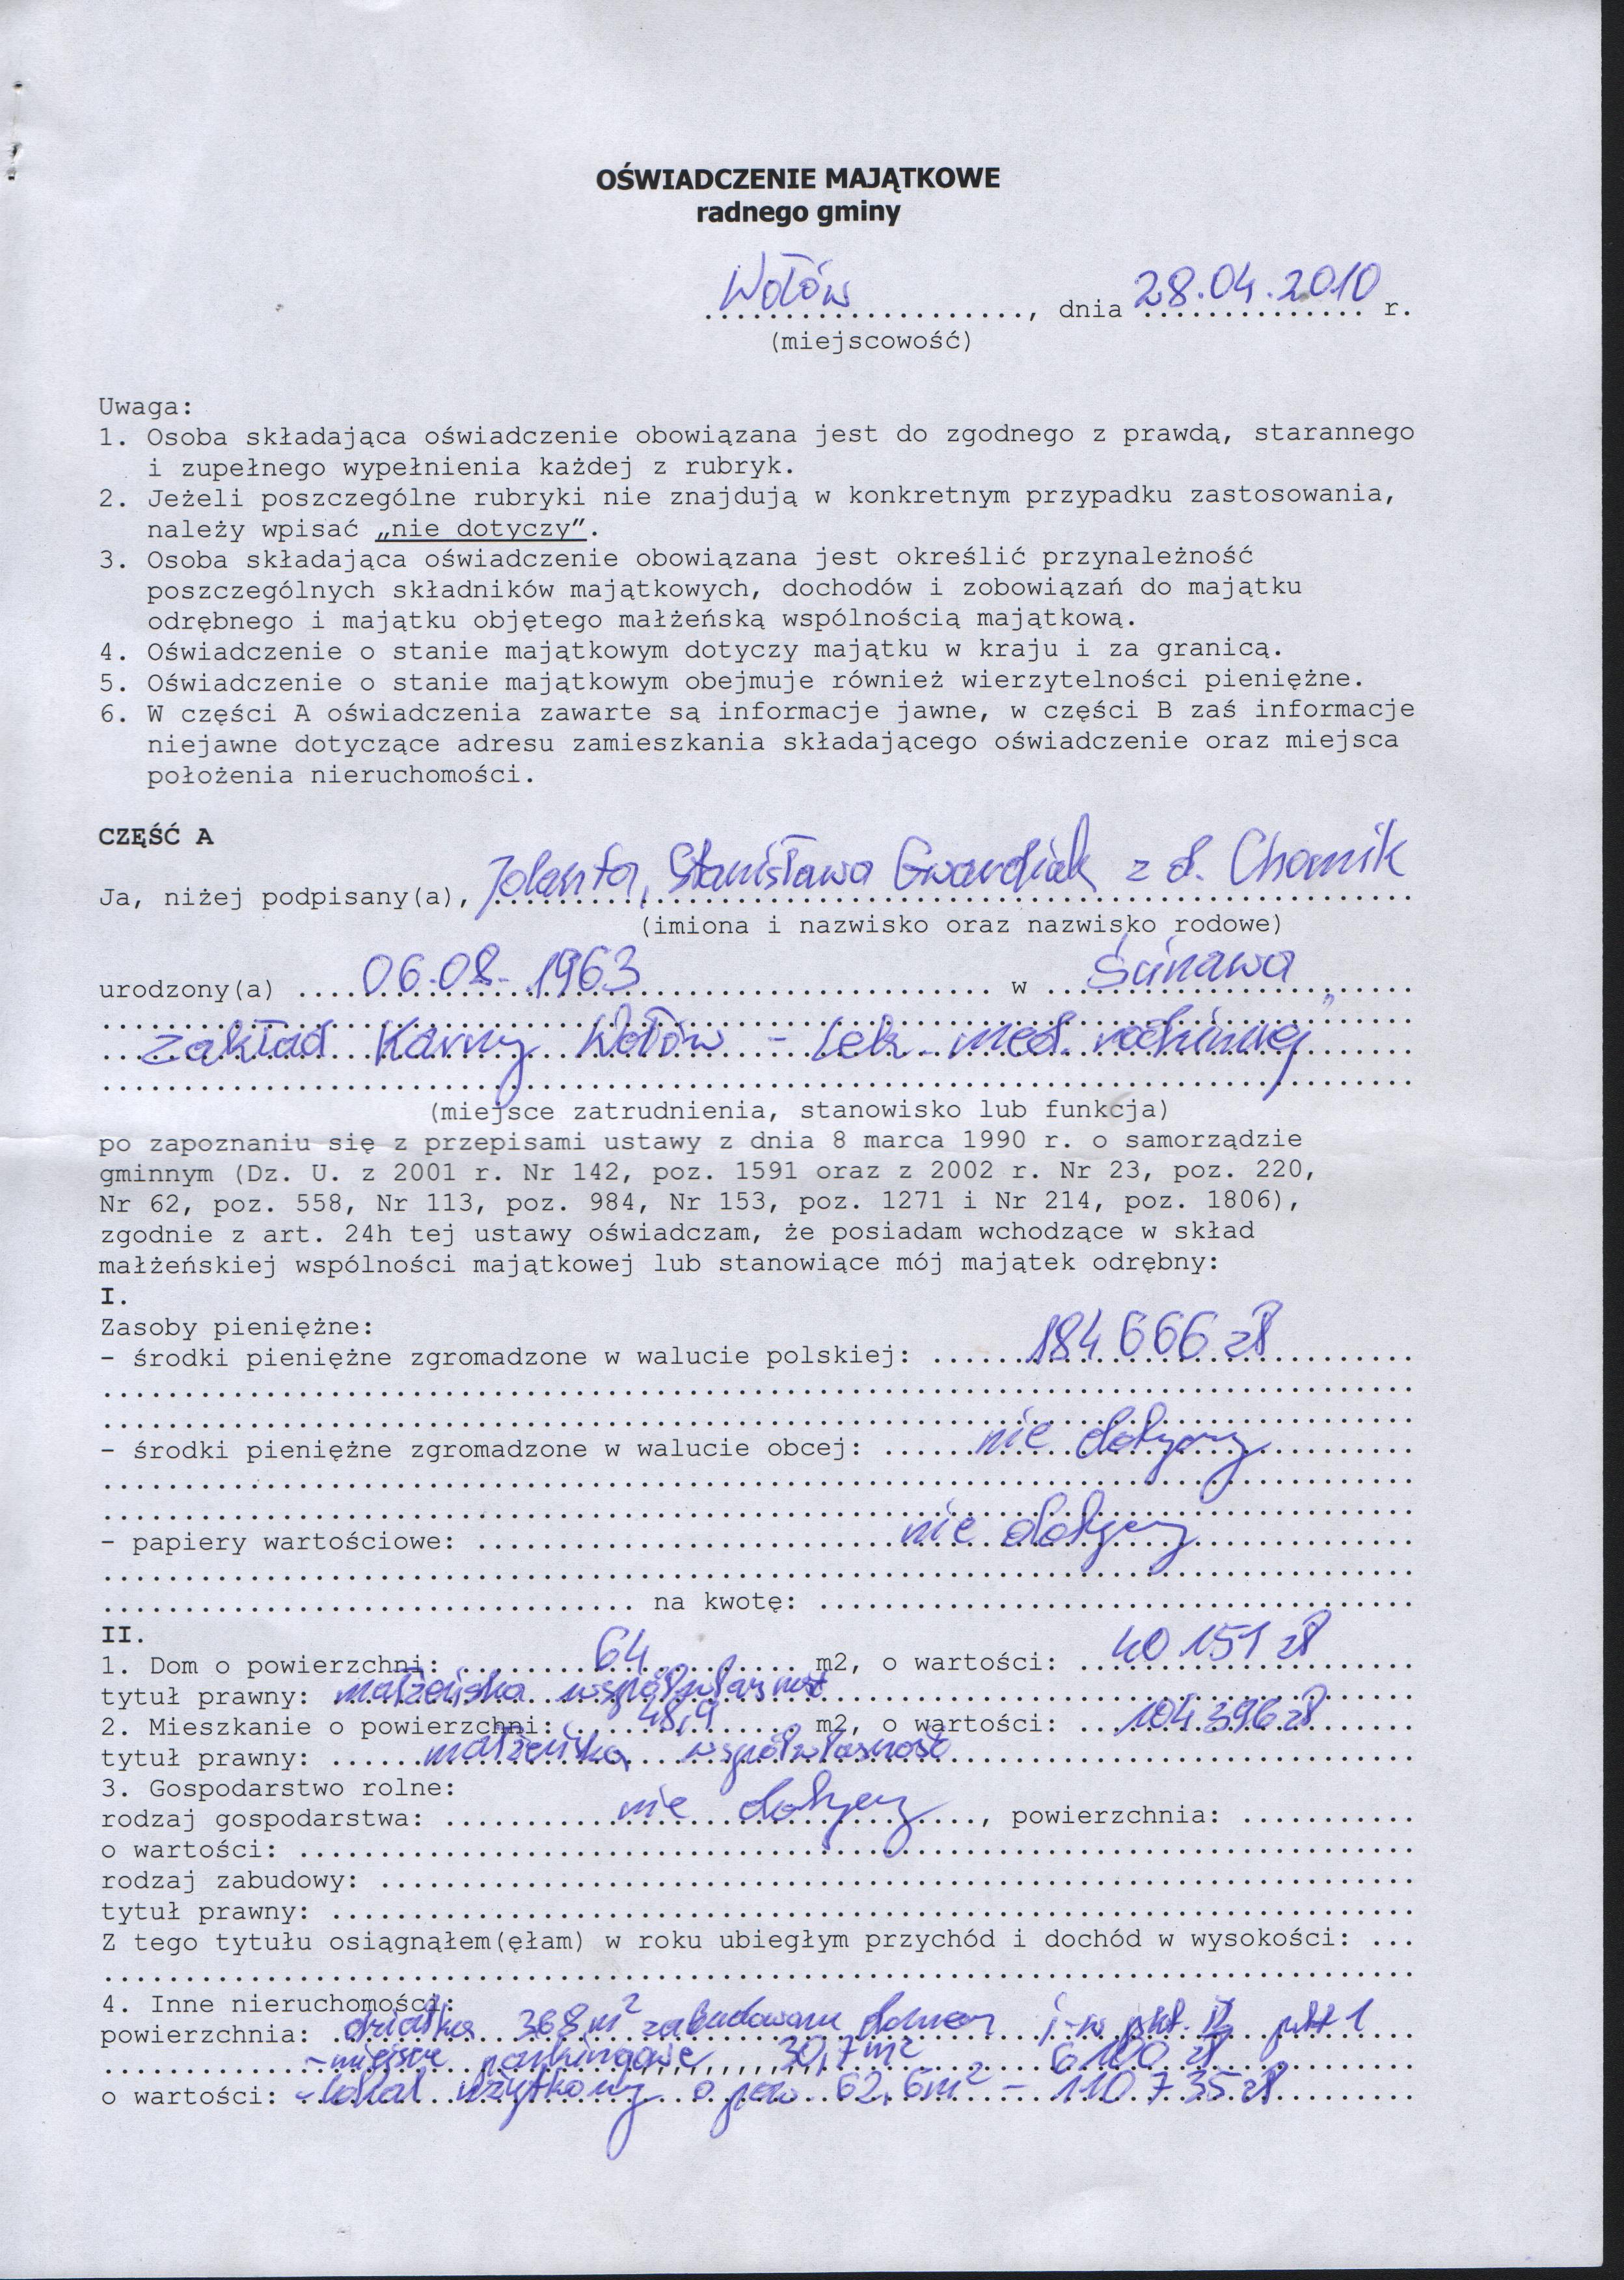 OŚWIADCZENIE MAJĄTKOWE
radnego gminy
Wołów, dnia 28.04.2010 r.
(miejscowość)
Uwaga:
1. Osoba składająca oświadczenie obowiązana jest do zgodnego z prawdą, starannego
i zupełnego wypełnienia każdej z rubryk.
2. Jeżeli poszczególne rubryki nie znajdują w konkretnym przypadku zastosowania,
należy wpisać „nie dotyczy".
3. Osoba składająca oświadczenie obowiązana jest określić przynależność
poszczególnych składników majątkowych, dochodów i zobowiązań do majątku
odrębnego i majątku objętego małżeńską wspólnością majątkową.
4. Oświadczenie o stanie majątkowym dotyczy majątku w kraju i za granicą.
5. Oświadczenie o stanie majątkowym obejmuje również wierzytelności pieniężne.
6. W części A oświadczenia zawarte są informacje jawne, w części B zaś informacje
niejawne dotyczące adresu zamieszkania składającego oświadczenie oraz miejsca
położenia nieruchomości.
CZĘŚĆ A
Ja, niżej podpisany(a), Jolanta, Stanisława Gwardiak z d. Chomik
(imiona i nazwisko oraz nazwisko rodowe)
urodzony(a) 06.08.1963 w Ścinawa
Zakład Karny Wołów - lek. med. rodzinnej
(miejsce zatrudnienia, stanowisko lub funkcja)
po zapoznaniu się z przepisami ustawy z dnia 8 marca 1990 r. o samorządzie
gminnym (Dz. U. z 2001 r. Nr 142, poz. 1591 oraz z 2002 r. Nr 23, poz. 220,
Nr 62, poz. 558, Nr 113, poz. 984, Nr 153, poz. 1271 i Nr 214, poz. 1806),
zgodnie z art. 24h tej ustawy oświadczam, że posiadam wchodzące w skład
małżeńskiej wspólności majątkowej lub stanowiące mój majątek odrębny:
I.
Zasoby pieniężne:
- środki pieniężne zgromadzone w walucie polskiej: 184 666 zł
- środki pieniężne zgromadzone w walucie obcej: nie dotyczy
- papiery wartościowe: nie dotyczy
na kwotę:
II.
1. Dom o powierzchni: 64 m2, o wartości: 40 151 zł
tytuł prawny: małżeńska współwłasność
2. Mieszkanie o powierzchni: 48,9 m2, o wartości: 104 396 zł
tytuł prawny: małżeńska współwłasność
3. Gospodarstwo rolne:
rodzaj gospodarstwa: nie dotyczy, powierzchnia:
o wartości:
rodzaj zabudowy:
tytuł prawny:
Z tego tytułu osiągnąłem(ęłam) w roku ubiegłym przychód i dochód w wysokości:
4. Inne nieruchomości:
powierzchnia: działka 368 m² zabudowana domem j-w pkt. II pkt 1
- miejsce parkingowe 30,7 m² 6100 zł
o wartości: - lokal użytkowy o pow 62,6m² - 110 735 zł